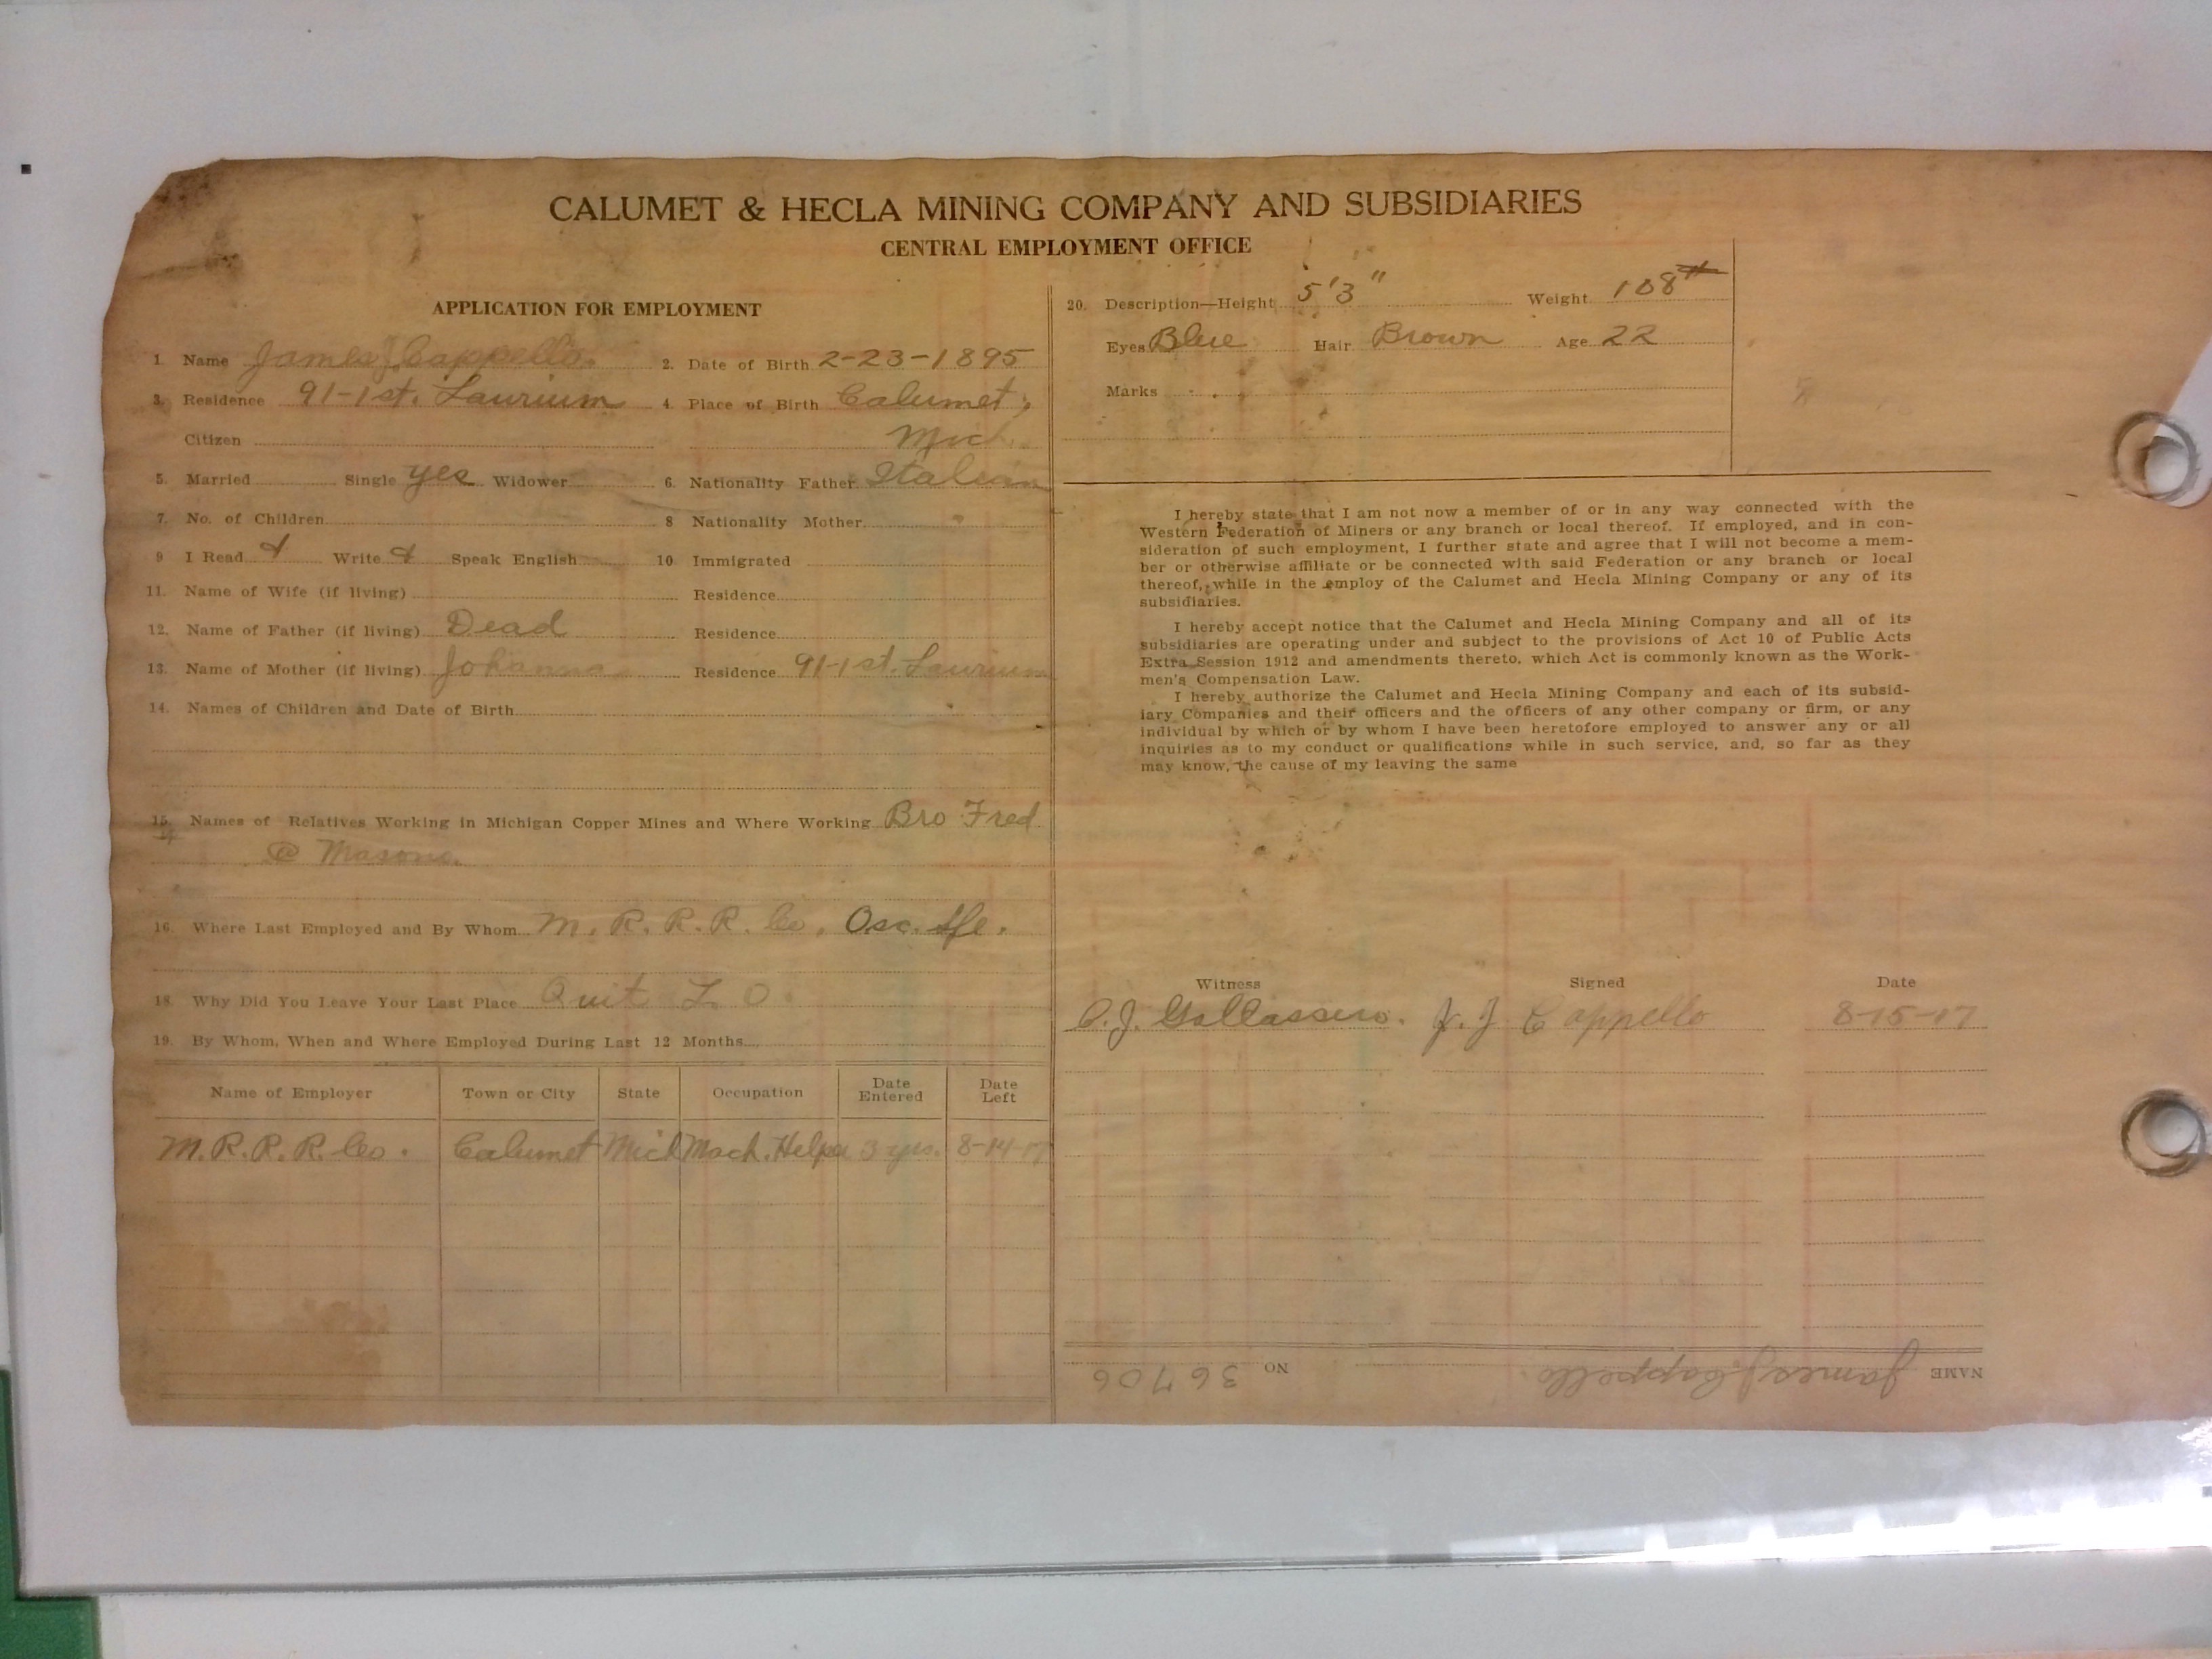 CALUMET & HECLA MINING COMPANY AND SUBSIDIARIES
CENTRAL EMPLOYMENT OFFICE
APPLICATION FOR EMPLOYMENT
1. Name James J. Cappello. 2. Date of Birth 2-23-1895
3. Residence 91-1st. Laurium 4. Place of Birth Calumet,
Citizen Mich.
5. Married Single yes Widower 6. Nationality Father Italian
7. No. of Children 8 Nationality Mother
9 I Read & Write & Speak English 10 Immigrated
11. Name of Wife (if living) Residence
12. Name of Father (if living) Dead Residence
13. Name of Mother (if living) Johanna Residence 91-1st. Laurium
14. Names of Children and Date of Birth
15. Names of Relatives Working in Michigan Copper Mines and Where Working Bro Fred
@ Masons.
16. Where Last Employed and By Whom M. R. R. R. Co. Osc.
18. Why Did You Leave Your Last Place Quit
19. By Whom, When and Where Employed During Last 12 Months
Name of Employer Town or City State Occupation Date Entered Date Left
M. R. R. R. Co. Calumet Mich Mach. Helper 3 yrs. 8-14-17
20. Description—Height 5'3" Weight 108#
Eyes Blue Hair Brown Age 22
Marks
I hereby state that I am not now a member of or in any way connected with the
Western Federation of Miners or any branch or local thereof. If employed, and in con-
sideration of such employment, I further state and agree that I will not become a mem-
ber or otherwise affiliate or be connected with said Federation or any branch or local
thereof, while in the employ of the Calumet and Hecla Mining Company or any of its
subsidiaries.
I hereby accept notice that the Calumet and Hecla Mining Company and all of its
subsidiaries are operating under and subject to the provisions of Act 10 of Public Acts
Extra Session 1912 and amendments thereto, which Act is commonly known as the Work-
men's Compensation Law.
I hereby authorize the Calumet and Hecla Mining Company and each of its subsid-
iary Companies and their officers and the officers of any other company or firm, or any
individual by which or by whom I have been heretofore employed to answer any or all
inquiries as to my conduct or qualifications while in such service, and, so far as they
may know, the cause of my leaving the same
Witness Signed Date
J. J. Cappello 8-15-17
NAME James J. Cappello NO 36706